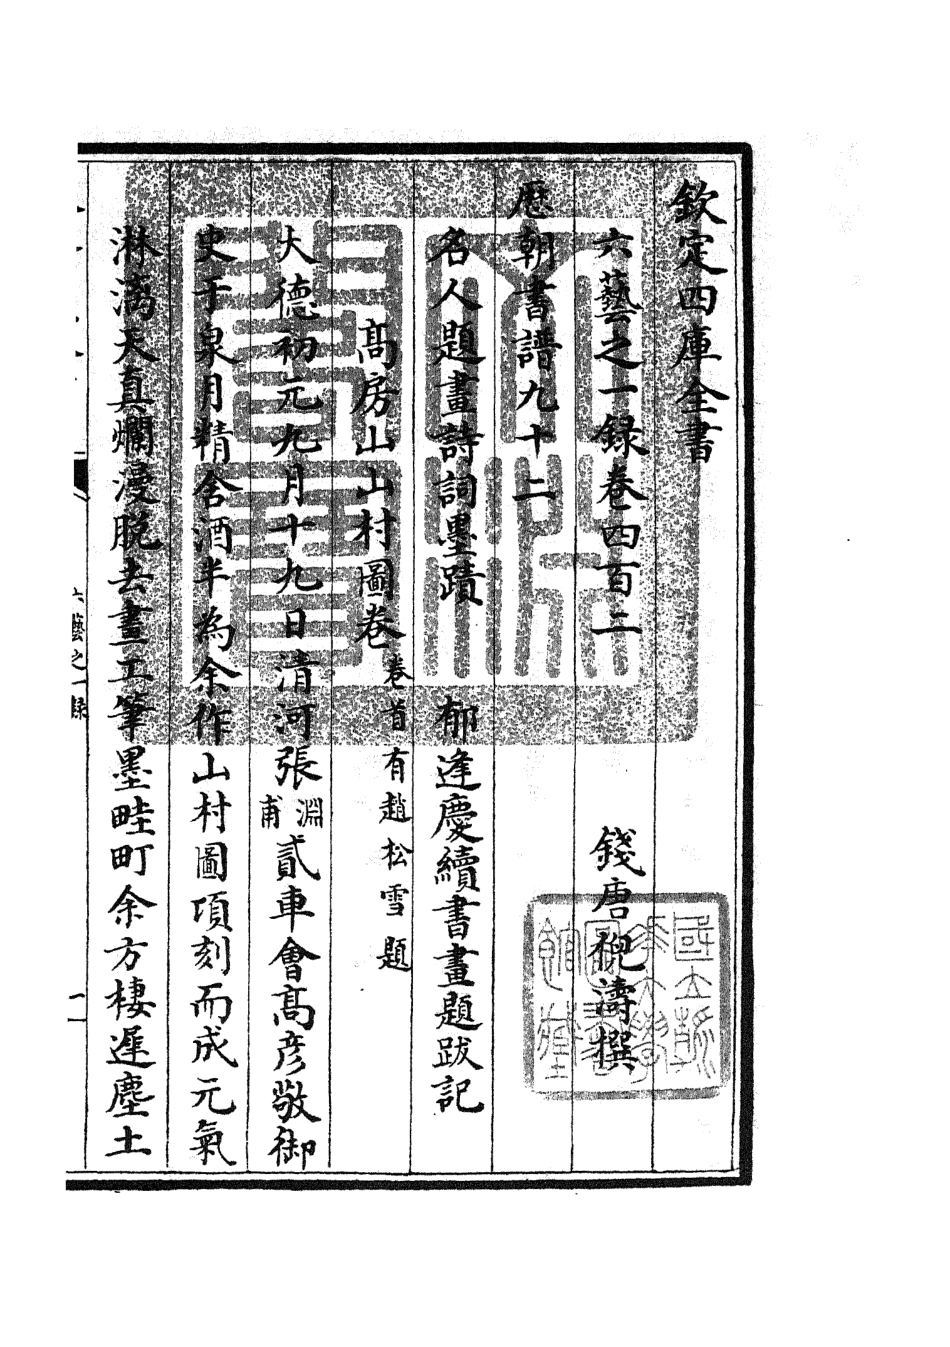 欽定四庫全書
六藝之一録卷四百二　錢唐倪濤撰
歷朝書譜九十二
名人題畫詩詞墨蹟　郁逢慶續書畫題跋記
髙房山山村圖卷 卷首有趙松雪題
大德初元九月十九日清河張淵甫貳車會髙彦敬御
史于泉月精舍酒半為余作山村圖項刻而成元氣
淋漓天真爛漫脱去畫工筆墨畦町余方棲遲塵土
六藝之一録
一